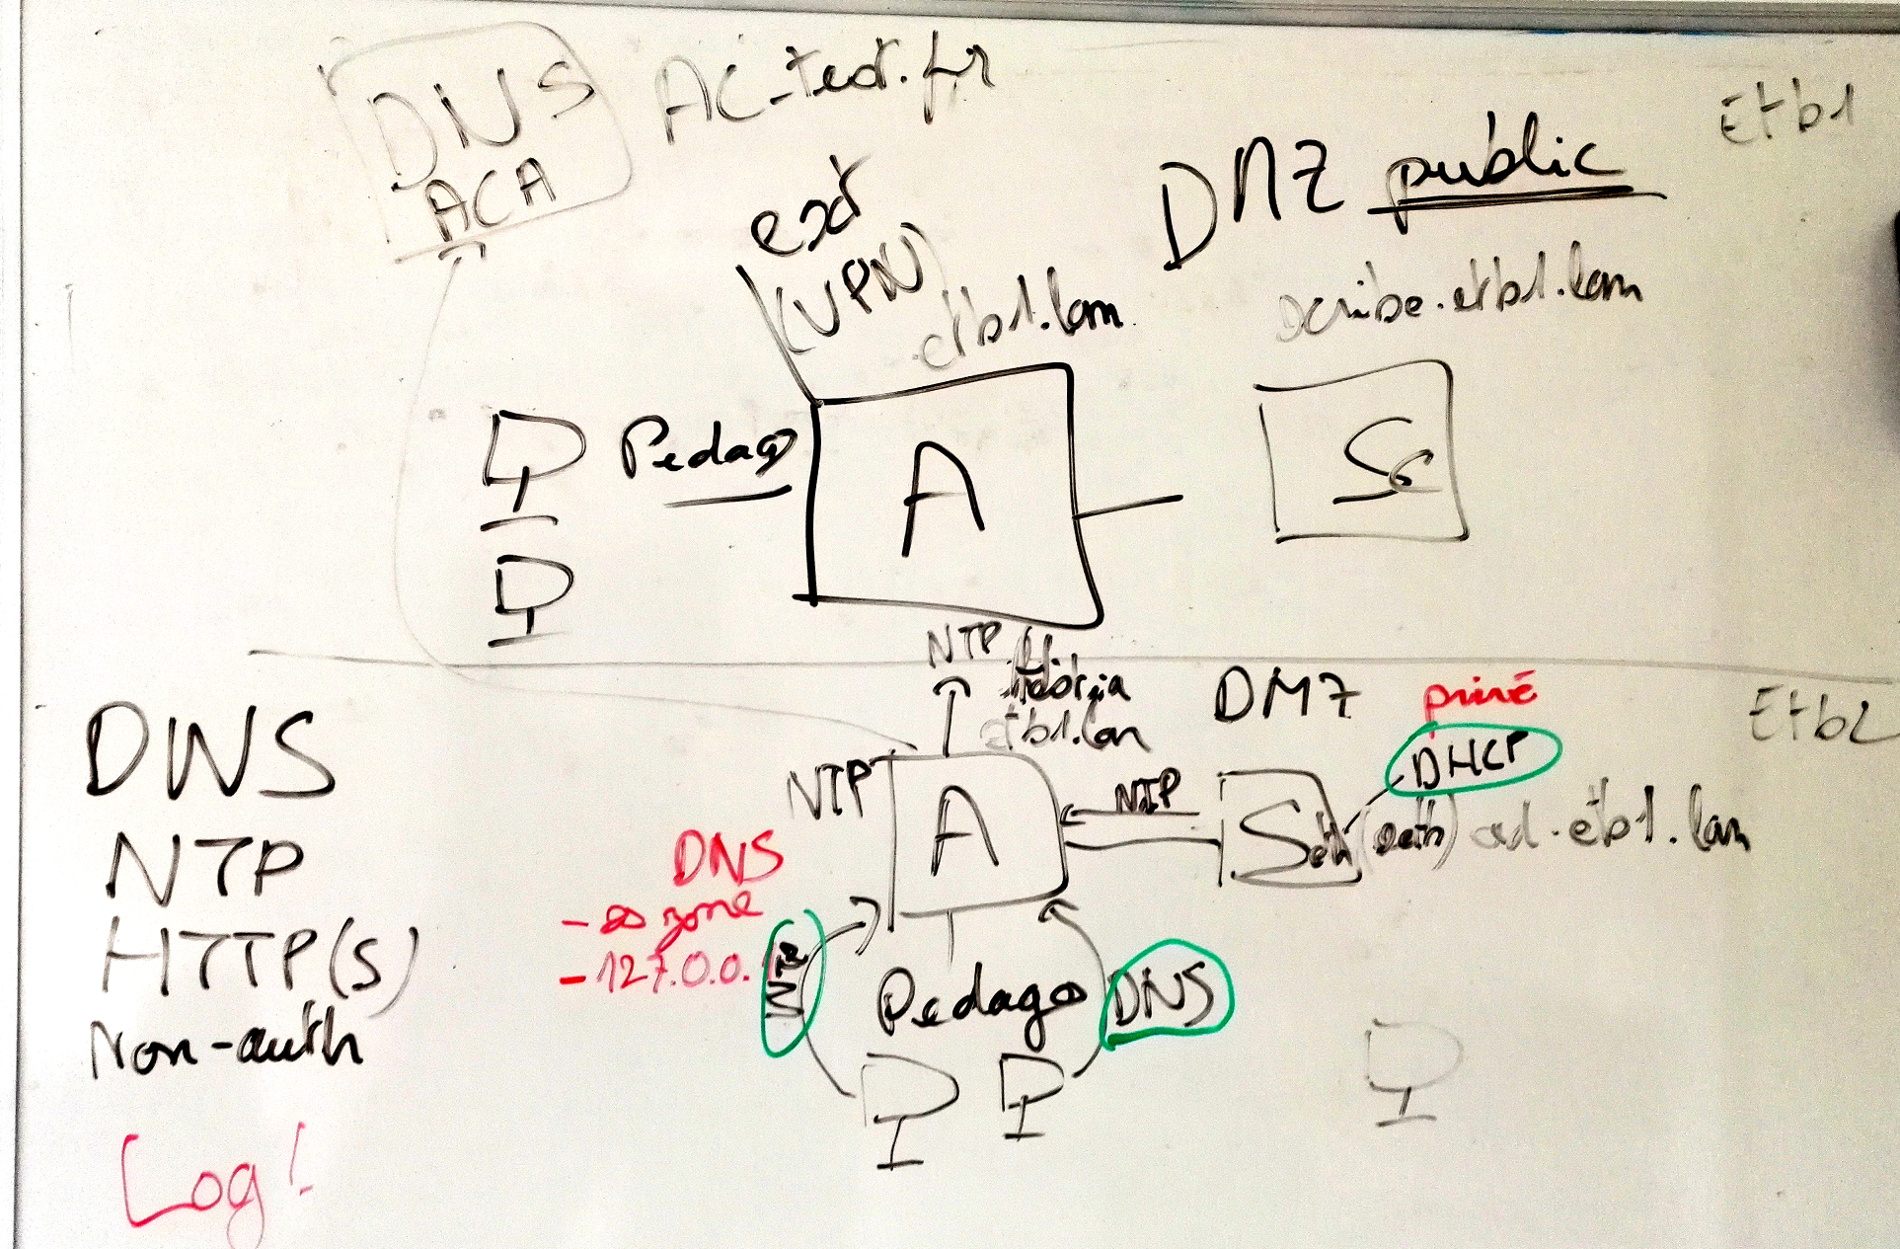 DNS
ACA
AC-test.fr
Etb1
ext
(VPN)
etb1.lan
DMZ public
scribe.etb1.lan
Pedago
A
Sc
NTP
etb1.lan
DMZ privé
Etb2
DNS
NTP
HTTP(s)
Non-auth
Log!
NTP
A
NTP
DHCP
ad.etb1.lan
DNS
zone
- 127.0.0.
NTP
Pedago
DNS